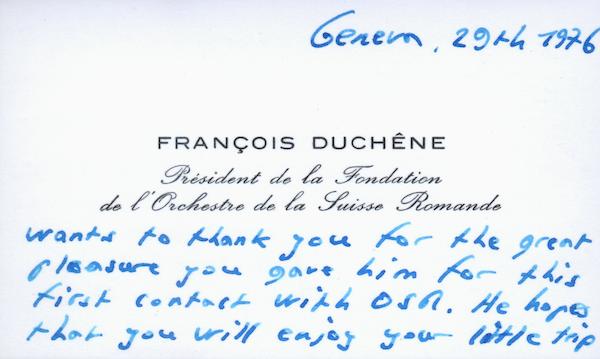 Geneva, 29th 1976
FRANÇOIS DUCHÊNE
Président de la Fondation
de l'Orchestre de la Suisse Romande
wants to thank you for the great
pleasure you gave him for this
first contact with OSR. He hopes
that you will enjoy your little trip